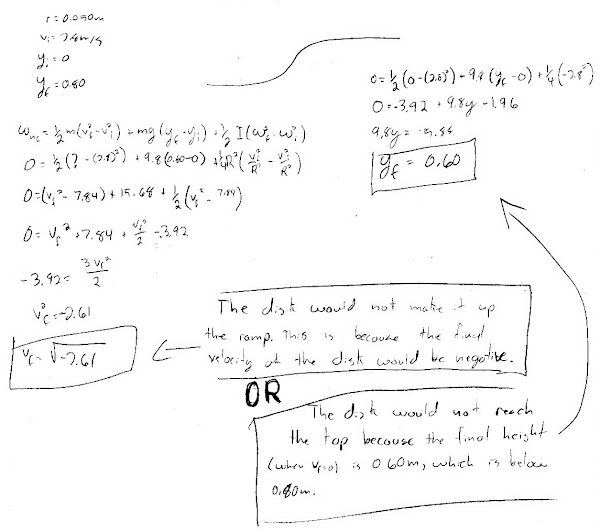 r = 0.050m
vi = 2.8m/s
yi = 0
yf = 0.80
Wnc = ½m(vf² - vi²) + mg(yf - yi) + ½ I(ωf² - ωi²)
0 = ½(? - (2.8)²) + 9.8(0.80-0) + ¼R²(vf²/R² - vi²/R²)
0 = (vf² - 7.84) + 15.68 + ½(vf² - 7.84)
0 = vf² + 7.84 + vf²/2 - 3.92
-3.92 = 3vf²/2
vf² = -2.61
vf = √-2.61
0 = ½(0 - (2.8)²) + 9.8(yf - 0) + ¼(-2.8²)
0 = -3.92 + 9.8y - 1.96
9.8y =
yf = 0.60
The disk would not make it up
the ramp. This is because the final
velocity of the disk would be negative.
OR
The disk would not reach
the top because the final height
(when vf=0) is 0.60m, which is below
0.80m.